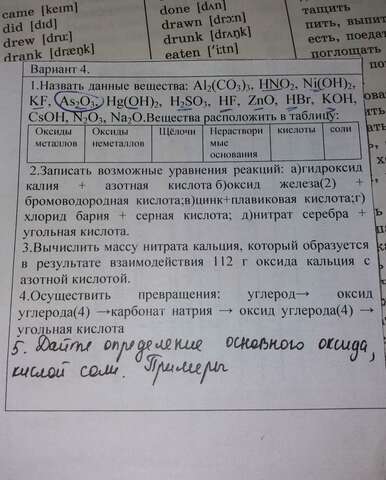 came [keım]
did [dıd]
drew [dru:]
drank [dræŋk]
done [dʌn]
drawn [drɔ:n]
drunk [drʌŋk]
eaten ['i:tn]
тащить
пить, выпит
есть, поедат
поглощать
Вариант 4.
1.Назвать данные вещества: Al₂(CO₃)₃, HNO₂, Ni(OH)₂,
KF, As₂O₃, Hg(OH)₂, H₂SO₃, HF, ZnO, HBr, KOH,
CsOH, N₂O₃, Na₂O.Вещества расположить в таблицу:
Оксиды металлов
Оксиды неметаллов
Щёлочи
Нераствори мые основания
кислоты
соли
2.Записать возможные уравнения реакций: а)гидроксид
калия + азотная кислота б)оксид железа(2) +
бромоводородная кислота;в)цинк+плавиковая кислота;г)
хлорид бария + серная кислота; д)нитрат серебра +
угольная кислота.
3.Вычислить массу нитрата кальция, который образуется
в результате взаимодействия 112 г оксида кальция с
азотной кислотой.
4.Осуществить превращения: углерод→ оксид
углерода(4) →карбонат натрия → оксид углерода(4) →
угольная кислота
5. Дайте определение основного оксида,
кислой соли. Примеры